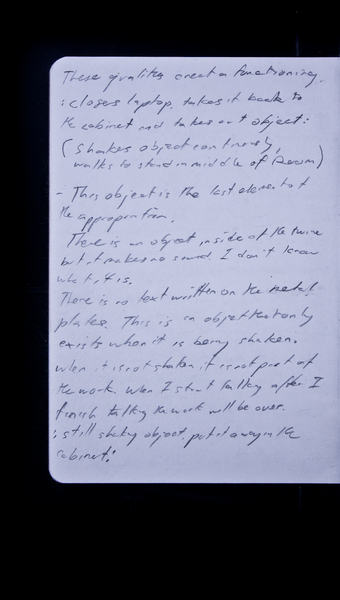 These qualities create a functioning.
: closes laptop, takes it back to
the cabinet and takes out object:
(Shakes object continously,
walks to stand in middle of Room)
- This object is the last element of
the appropriation.
There is an object inside of the twine
but it makes no sound. I don't know
what it is.
There is no text written on the metal
plates. This is an object that only
exists when it is being shaken.
When it is not shaken it is not part of
the work. When I start talking after I
finish talking the work will be over.
: still shaking object, put it away in the
cabinet: